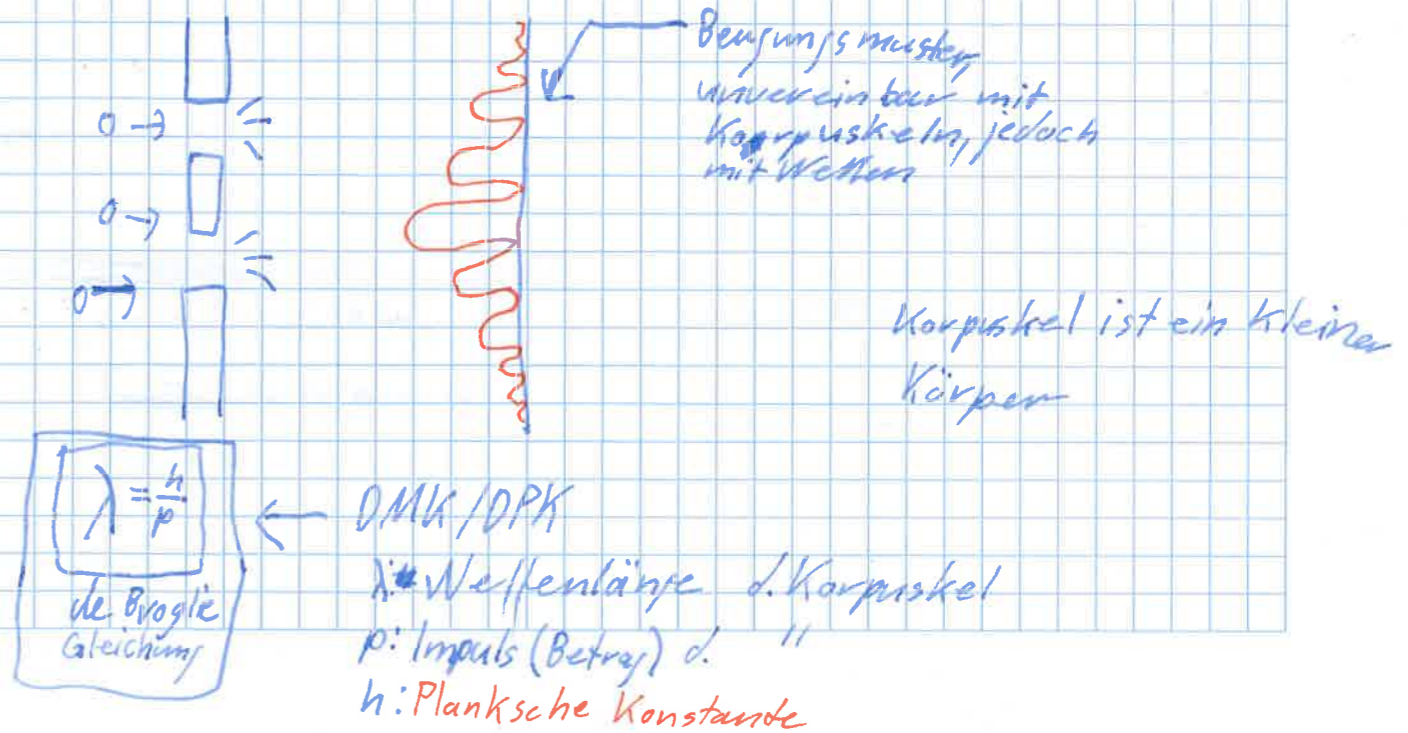 Beugungsmuster,
unvereinbar mit
Korpuskeln, jedoch
mit Wellen
Korpuskel ist ein kleiner
Körper
λ = h/p
de Broglie
Gleichung
DMK/DPK
λ: Wellenlänge d. Korpuskel
p: Impuls (Betrag) d. "
h: Planksche Konstante